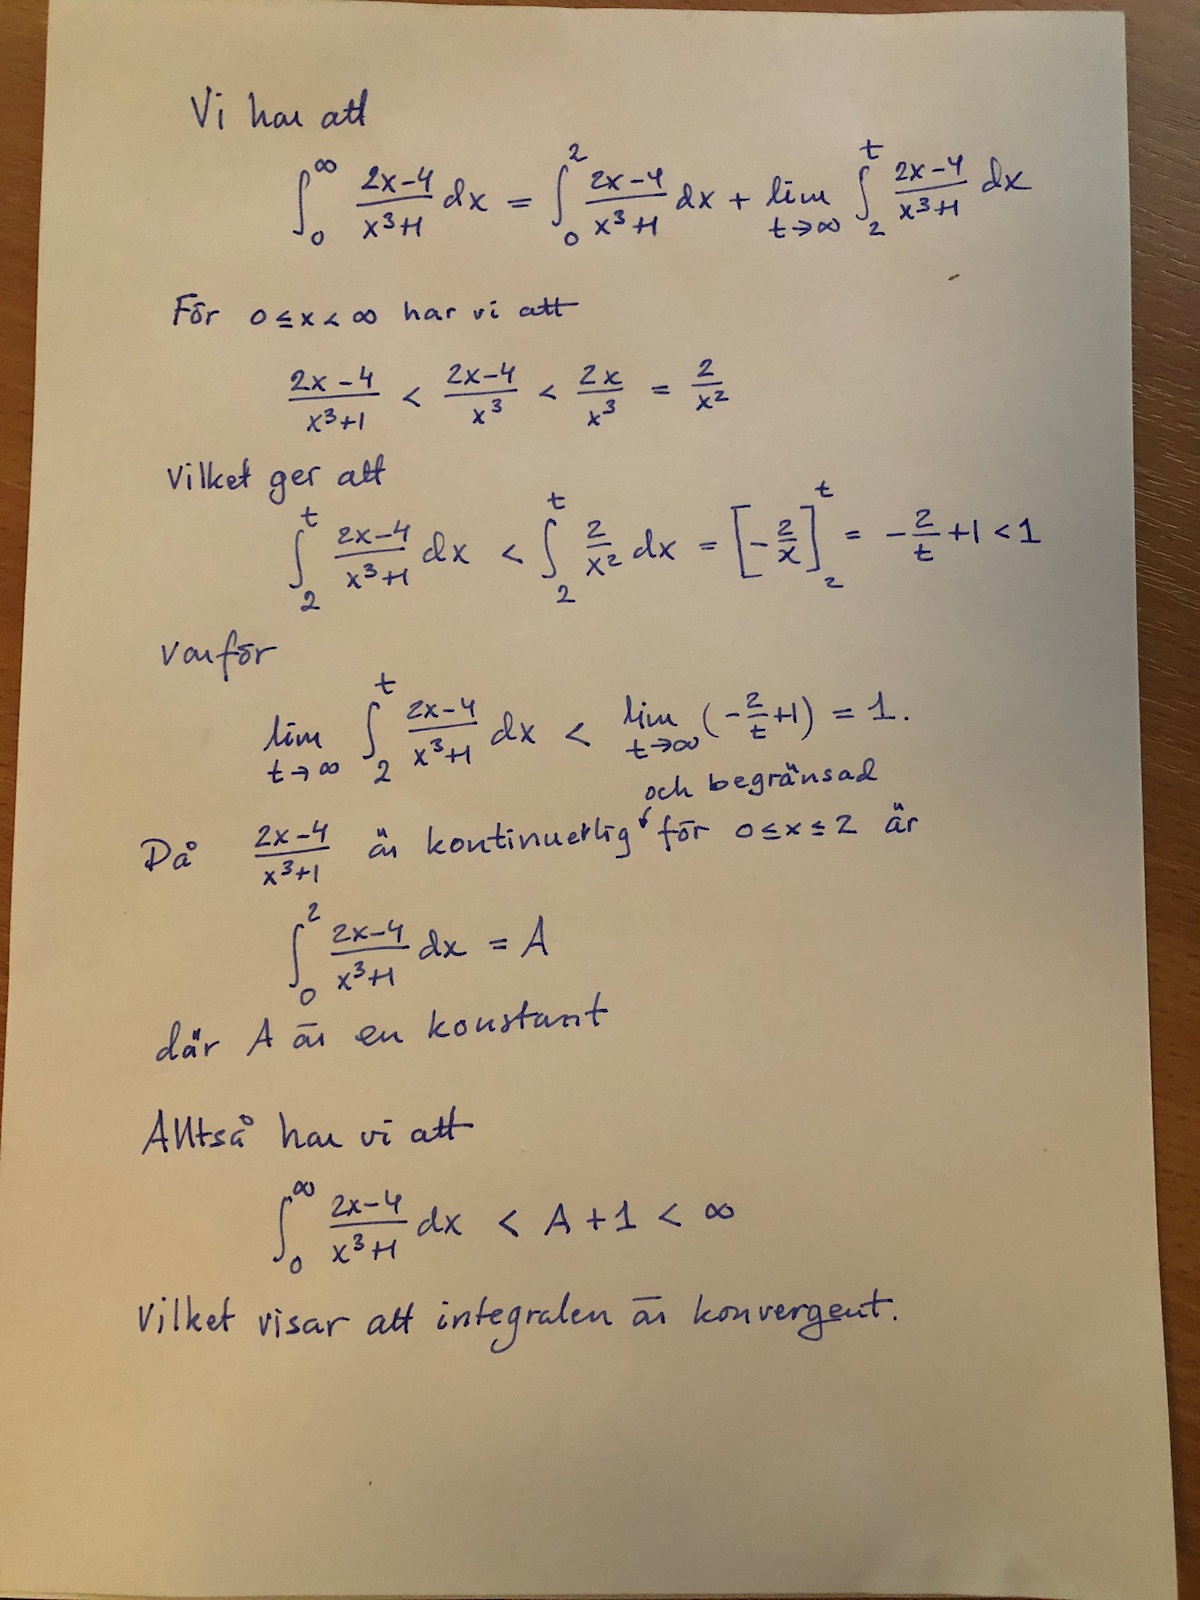 Vi har att
∫₀^∞ (2x-4)/(x³+1) dx = ∫₀² (2x-4)/(x³+1) dx + lim_{t→∞} ∫₂^t (2x-4)/(x³+1) dx
För 0 ≤ x < ∞ har vi att
(2x-4)/(x³+1) < (2x-4)/x³ < 2x/x³ = 2/x²
Vilket ger att
∫₂^t (2x-4)/(x³+1) dx < ∫₂^t 2/x² dx = [-2/x]₂^t = -2/t + 1 < 1
Varför
lim_{t→∞} ∫₂^t (2x-4)/(x³+1) dx < lim_{t→∞} (-2/t + 1) = 1.
och begränsad
Då (2x-4)/(x³+1) är kontinuerlig för 0 ≤ x ≤ 2 är
∫₀² (2x-4)/(x³+1) dx = A
där A är en konstant
Alltså har vi att
∫₀^∞ (2x-4)/(x³+1) dx < A + 1 < ∞
Vilket visar att integralen är konvergent.